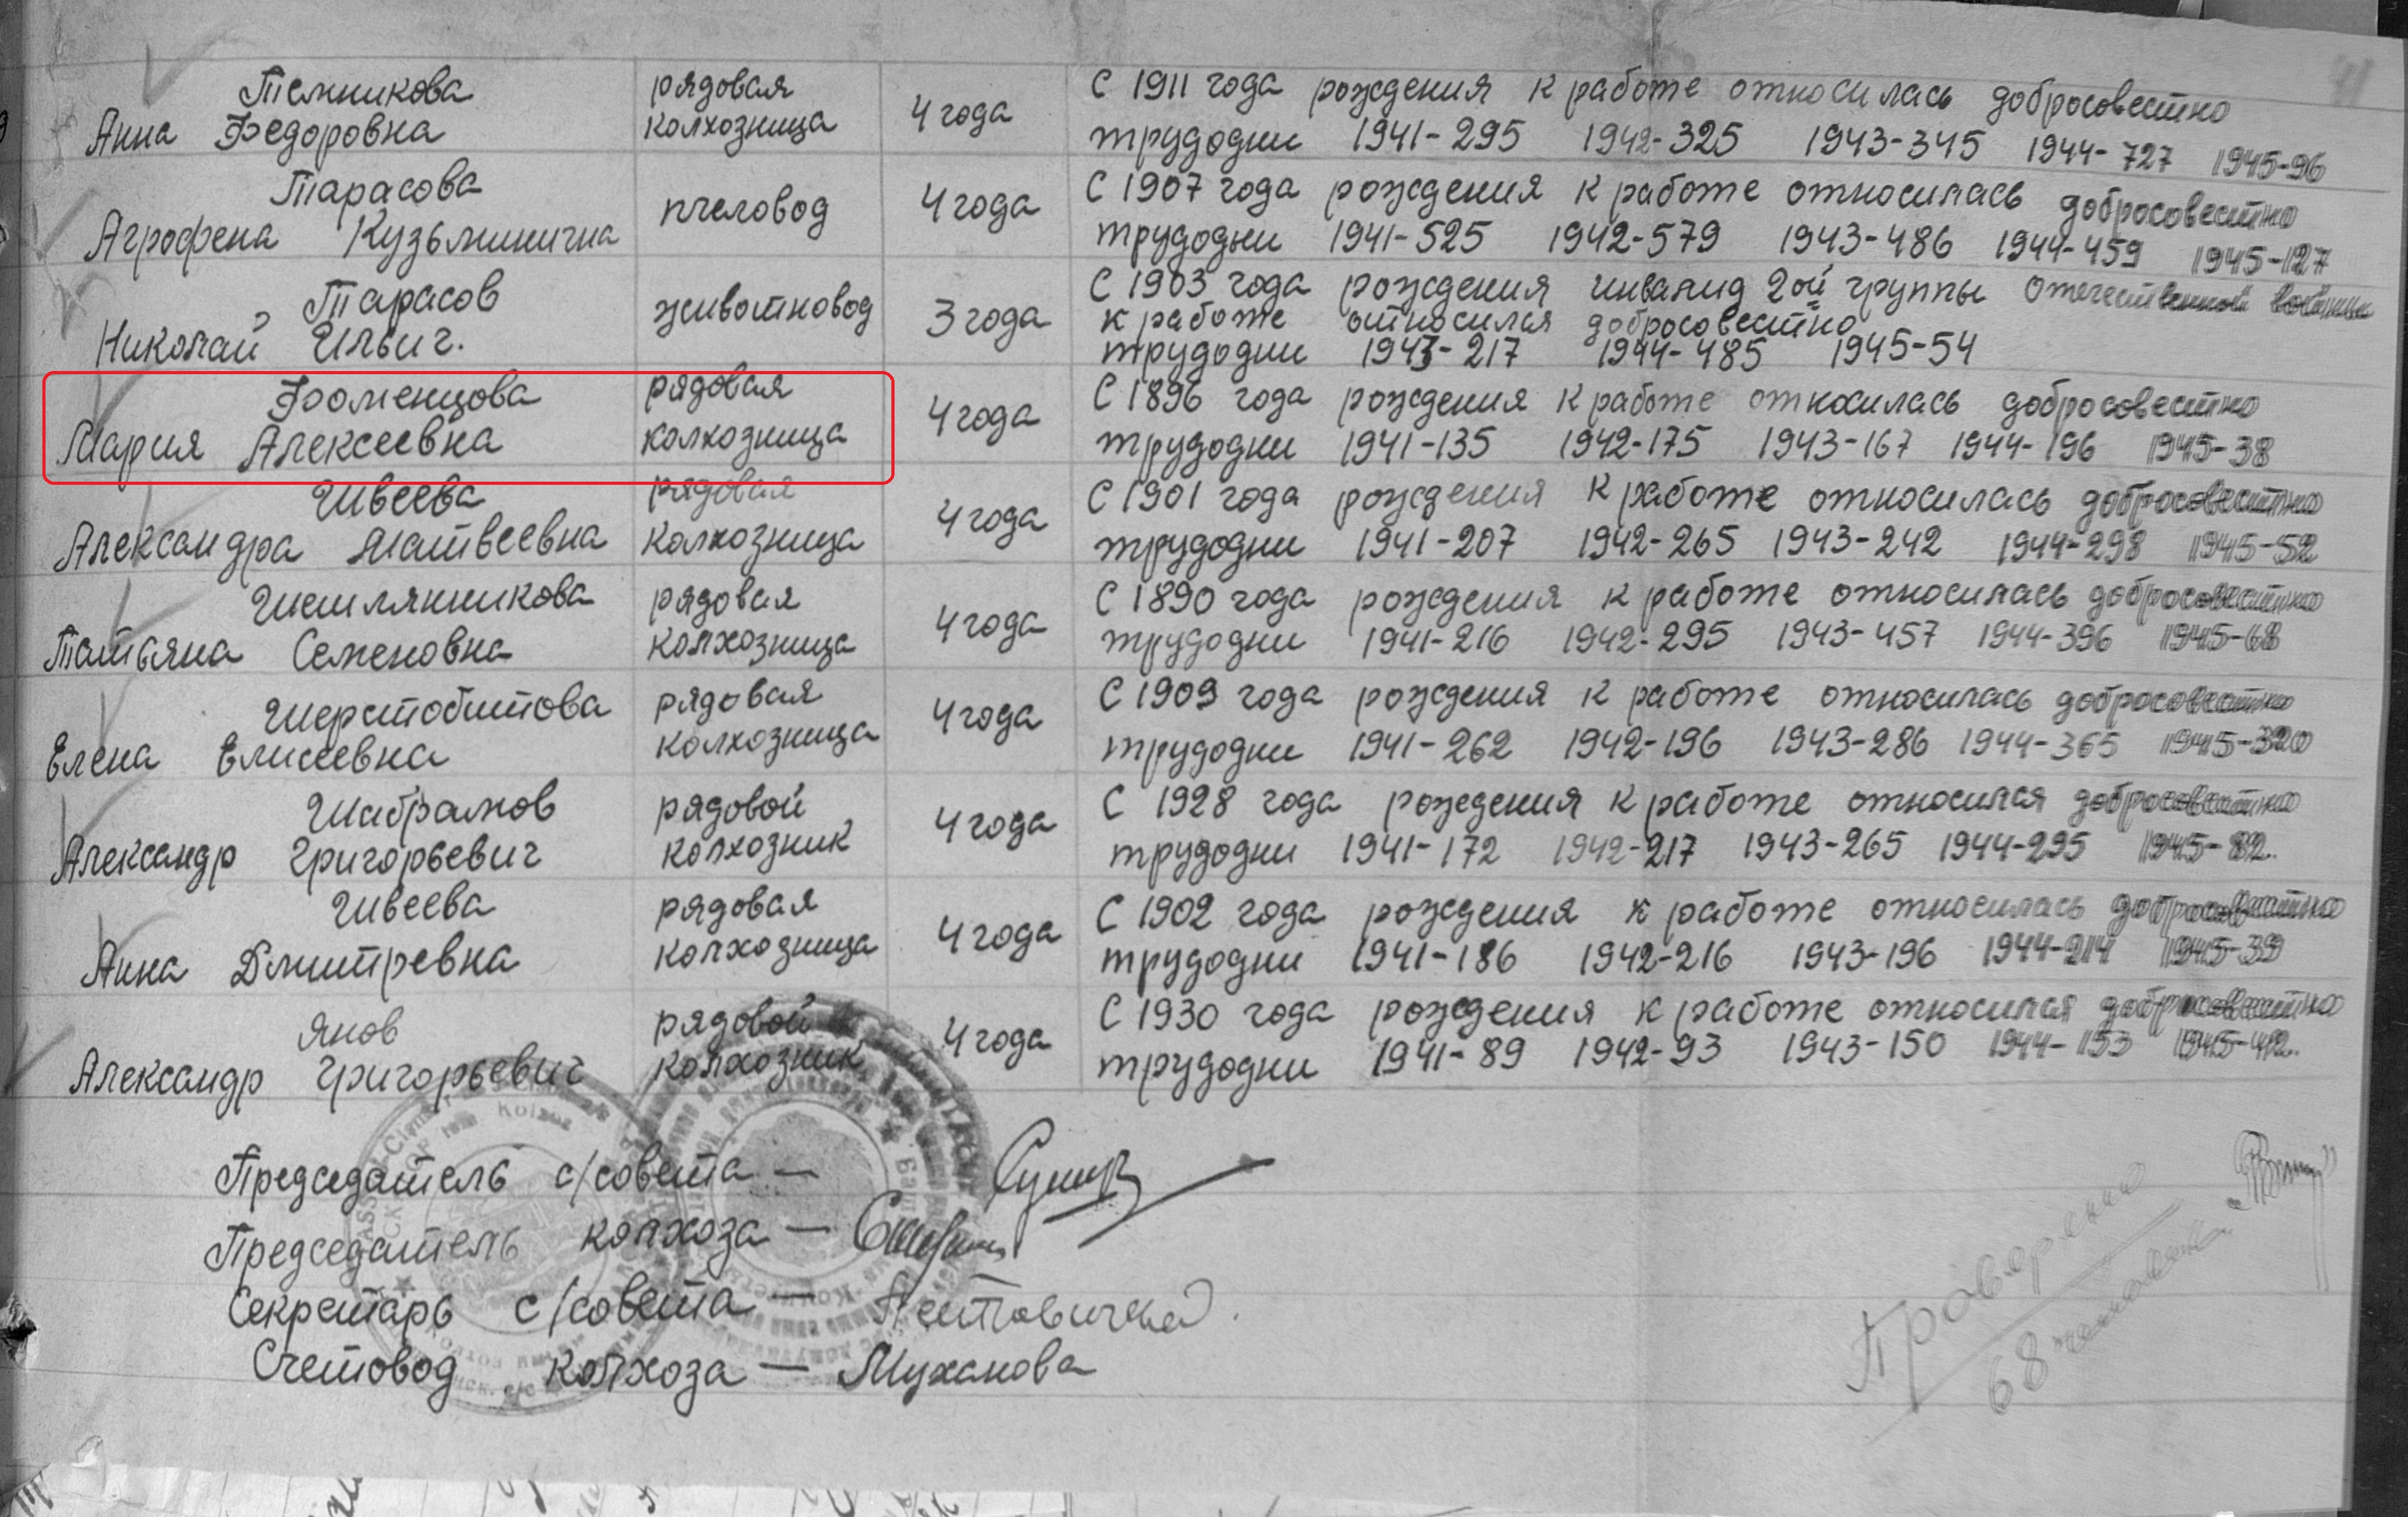 41
Темникова рядовая С 1911 года рождения к работе относилась добросовестно
Анна Федоровна колхозница 4 года трудодни 1941-295 1942-325 1943-345 1944-727 1945-96
Тарасова С 1907 года рождения к работе относилась добросовестно
Агрофена Кузьминична пчеловод 4 года трудодни 1941-525 1942-579 1943-486 1944-459 1945-127
Тарасов С 1903 года рождения инвалид 2ой группы Отечественной войны
Николай Ильич. животновод 3 года к работе относился добросовестно
трудодни 1943-217 1944-485 1945-54
Фоменцова рядовая С 1896 года рождения к работе относилась добросовестно
Мария Алексеевна колхозница 4 года трудодни 1941-135 1942-175 1943-167 1944-196 1945-38
Швеева рядовая С 1901 года рождения к работе относилась добросовестно
Александра Матвеевна колхозница 4 года трудодни 1941-207 1942-265 1943-242 1944-298 1945-52
Шишлянникова рядовая С 1890 года рождения к работе относилась добросовестно
Татьяна Семеновна колхозница 4 года трудодни 1941-216 1942-295 1943-457 1944-396 1945-68
Шерстобитова рядовая С 1909 года рождения к работе относилась добросовестно
Елена Елисеевна колхозница 4 года трудодни 1941-262 1942-196 1943-286 1944-365 1945-320
Шабрамов рядовой С 1928 года рождения к работе относился добросовестно
Александр Григорьевич колхозник 4 года трудодни 1941-172 1942-217 1943-265 1944-295 1945-82.
Швеева рядовая С 1902 года рождения к работе относилась добросовестно
Анна Дмитревна колхозница 4 года трудодни 1941-186 1942-216 1943-196 1944-214 1945-39
Янов рядовой С 1930 года рождения к работе относился добросовестно
Александр Григорьевич колхозник 4 года трудодни 1941-89 1942-93 1943-150 1944-153 1945-42.
Председатель с/совета —
Председатель колхоза —
Секретарь с/совета —
Счетовод колхоза — Муханова
Проверено
68 человек